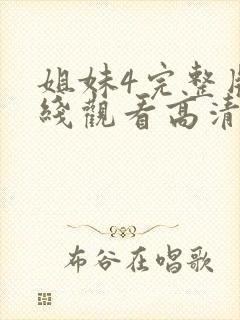 姐妹4完整
綫觀看高清
布谷在唱歌